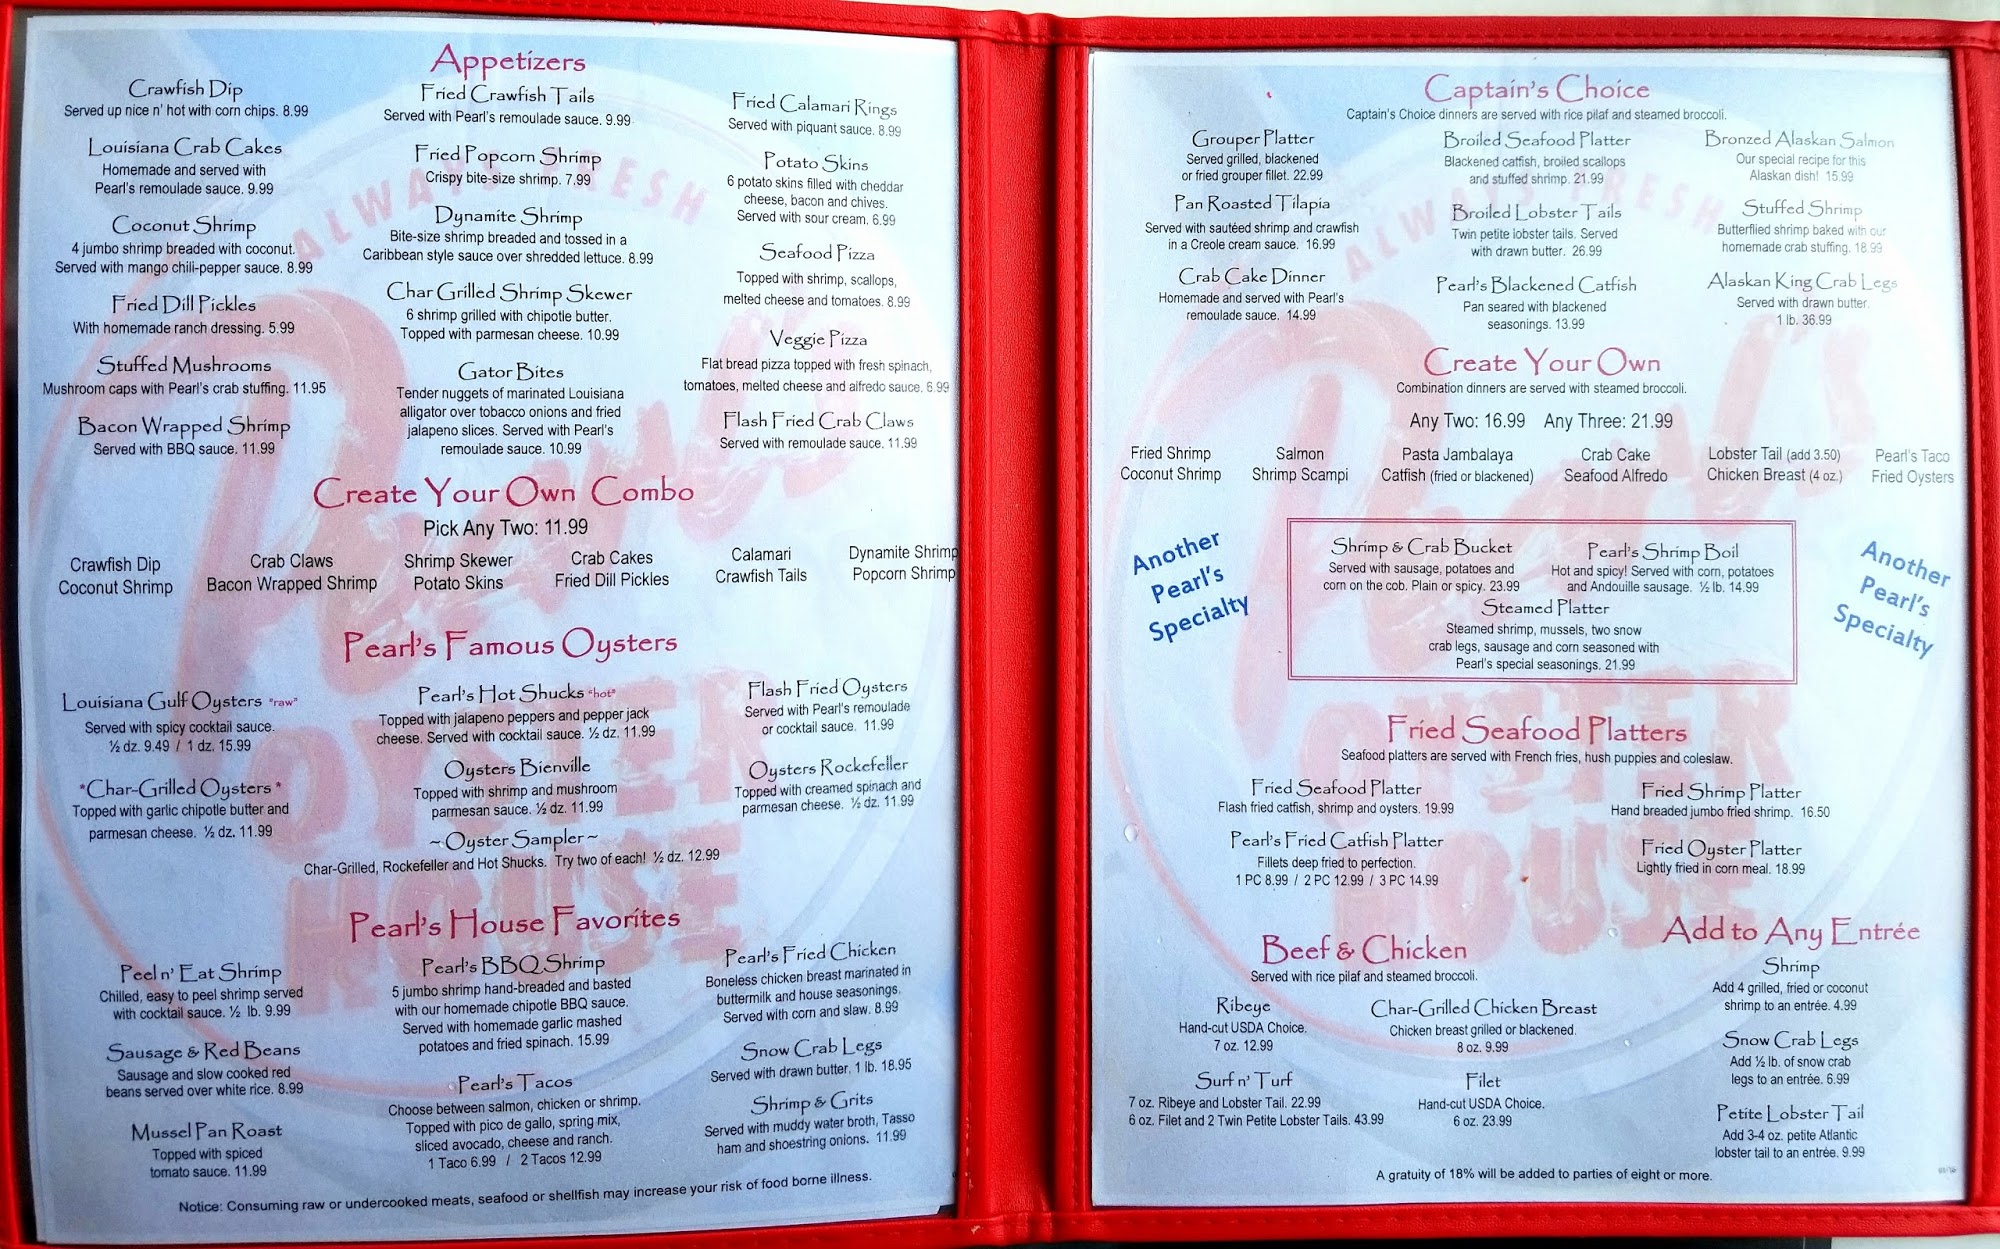 Appetizers
Crawfish Dip
Served up nice n' hot with corn chips. 8.99
Louisiana Crab Cakes
Homemade and served with
Pearl's remoulade sauce. 9.99
Coconut Shrimp
4 jumbo shrimp breaded with coconut.
Served with mango chili-pepper sauce. 8.99
Fried Dill Pickles
With homemade ranch dressing. 5.99
Stuffed Mushrooms
Mushroom caps with Pearl's crab stuffing. 11.95
Bacon Wrapped Shrimp
Served with BBQ sauce. 11.99
Fried Crawfish Tails
Served with Pearl's remoulade sauce. 9.99
Fried Popcorn Shrimp
Crispy bite-size shrimp. 7.99
Dynamite Shrimp
Bite-size shrimp breaded and tossed in a
Caribbean style sauce over shredded lettuce. 8.99
Char Grilled Shrimp Skewer
6 shrimp grilled with chipotle butter.
Topped with parmesan cheese. 10.99
Gator Bites
Tender nuggets of marinated Louisiana
alligator over tobacco onions and fried
jalapeno slices. Served with Pearl's
remoulade sauce. 10.99
Fried Calamari Rings
Served with piquant sauce. 8.99
Potato Skins
6 potato skins filled with cheddar
cheese, bacon and chives.
Served with sour cream. 6.99
Seafood Pizza
Topped with shrimp, scallops,
melted cheese and tomatoes. 8.99
Veggie Pizza
Flat bread pizza topped with fresh spinach,
tomatoes, melted cheese and alfredo sauce. 6.99
Flash Fried Crab Claws
Served with remoulade sauce. 11.99
Create Your Own Combo
Pick Any Two: 11.99
Crawfish Dip
Coconut Shrimp
Crab Claws
Bacon Wrapped Shrimp
Shrimp Skewer
Potato Skins
Crab Cakes
Fried Dill Pickles
Calamari
Crawfish Tails
Dynamite Shrimp
Popcorn Shrimp
Pearl's Famous Oysters
Louisiana Gulf Oysters "raw"
Served with spicy cocktail sauce.
½ dz. 9.49 / 1 dz. 15.99
*Char-Grilled Oysters *
Topped with garlic chipotle butter and
parmesan cheese. ½ dz. 11.99
Pearl's Hot Shucks "hot"
Topped with jalapeno peppers and pepper jack
cheese. Served with cocktail sauce. ½ dz. 11.99
Oysters Bienville
Topped with shrimp and mushroom
parmesan sauce. ½ dz. 11.99
Flash Fried Oysters
Served with Pearl's remoulade
or cocktail sauce. 11.99
Oysters Rockefeller
Topped with creamed spinach and
parmesan cheese. ½ dz. 11.99
~ Oyster Sampler ~
Char-Grilled, Rockefeller and Hot Shucks. Try two of each! ½ dz. 12.99
Pearl's House Favorites
Peel n' Eat Shrimp
Chilled, easy to peel shrimp served
with cocktail sauce. ½ lb. 9.99
Sausage & Red Beans
Sausage and slow cooked red
beans served over white rice. 8.99
Mussel Pan Roast
Topped with spiced
tomato sauce. 11.99
Pearl's BBQ Shrimp
5 jumbo shrimp hand-breaded and basted
with our homemade chipotle BBQ sauce.
Served with homemade garlic mashed
potatoes and fried spinach. 15.99
Pearl's Tacos
Choose between salmon, chicken or shrimp.
Topped with pico de gallo, spring mix,
sliced avocado, cheese and ranch.
1 Taco 6.99 / 2 Tacos 12.99
Pearl's Fried Chicken
Boneless chicken breast marinated in
buttermilk and house seasonings.
Served with corn and slaw. 8.99
Snow Crab Legs
Served with drawn butter. 1 lb. 18.95
Shrimp & Grits
Served with muddy water broth, Tasso
ham and shoestring onions. 11.99
Notice: Consuming raw or undercooked meats, seafood or shellfish may increase your risk of food borne illness.
ALWAYS FRESH
Pearl's
OYSTER
HOUSE
Captain's Choice
Captain's Choice dinners are served with rice pilaf and steamed broccoli.
Grouper Platter
Served grilled, blackened
or fried grouper fillet. 22.99
Pan Roasted Tilapia
Served with sautéed shrimp and crawfish
in a Creole cream sauce. 16.99
Crab Cake Dinner
Homemade and served with Pearl's
remoulade sauce. 14.99
Broiled Seafood Platter
Blackened catfish, broiled scallops
and stuffed shrimp. 21.99
Broiled Lobster Tails
Twin petite lobster tails. Served
with drawn butter. 26.99
Pearl's Blackened Catfish
Pan seared with blackened
seasonings. 13.99
Bronzed Alaskan Salmon
Our special recipe for this
Alaskan dish! 15.99
Stuffed Shrimp
Butterflied shrimp baked with our
homemade crab stuffing. 18.99
Alaskan King Crab Legs
Served with drawn butter.
1 lb. 36.99
Create Your Own
Combination dinners are served with steamed broccoli.
Any Two: 16.99 Any Three: 21.99
Fried Shrimp
Coconut Shrimp
Salmon
Shrimp Scampi
Pasta Jambalaya
Catfish (fried or blackened)
Crab Cake
Seafood Alfredo
Lobster Tail (add 3.50)
Chicken Breast (4 oz.)
Pearl's Taco
Fried Oysters
Another
Pearl's
Specialty
Shrimp & Crab Bucket
Served with sausage, potatoes and
corn on the cob. Plain or spicy. 23.99
Pearl's Shrimp Boil
Hot and spicy! Served with corn, potatoes
and Andouille sausage. ½ lb. 14.99
Steamed Platter
Steamed shrimp, mussels, two snow
crab legs, sausage and corn seasoned with
Pearl's special seasonings. 21.99
Another
Pearl's
Specialty
Fried Seafood Platters
Seafood platters are served with French fries, hush puppies and coleslaw.
Fried Seafood Platter
Flash fried catfish, shrimp and oysters. 19.99
Pearl's Fried Catfish Platter
Fillets deep fried to perfection.
1 PC 8.99 / 2 PC 12.99 / 3 PC 14.99
Fried Shrimp Platter
Hand breaded jumbo fried shrimp. 16.50
Fried Oyster Platter
Lightly fried in corn meal. 18.99
Beef & Chicken
Served with rice pilaf and steamed broccoli.
Ribeye
Hand-cut USDA Choice.
7 oz. 12.99
Surf n' Turf
7 oz. Ribeye and Lobster Tail. 22.99
6 oz. Filet and 2 Twin Petite Lobster Tails. 43.99
Char-Grilled Chicken Breast
Chicken breast grilled or blackened.
8 oz. 9.99
Filet
Hand-cut USDA Choice.
6 oz. 23.99
Add to Any Entrée
Shrimp
Add 4 grilled, fried or coconut
shrimp to an entrée. 4.99
Snow Crab Legs
Add ½ lb. of snow crab
legs to an entrée. 6.99
Petite Lobster Tail
Add 3-4 oz. petite Atlantic
lobster tail to an entrée. 9.99
A gratuity of 18% will be added to parties of eight or more.
ALWAYS FRESH
Pearl's
OYSTER
HOUSE